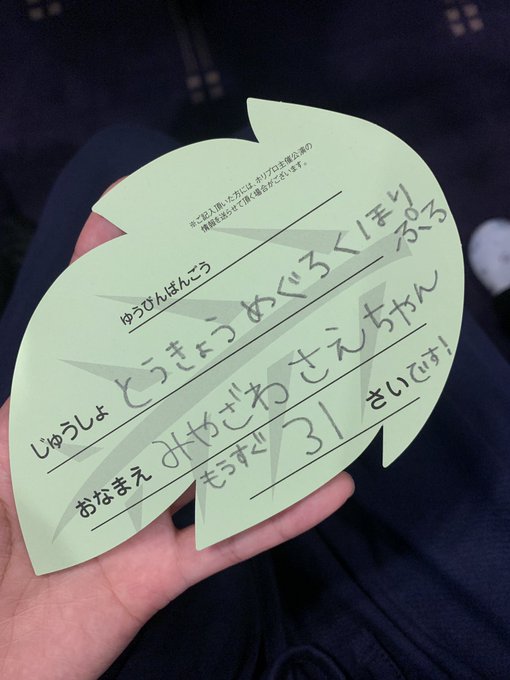 ※ご記入頂いた方には、ホリプロ主催公演の
情報を送らせて頂く場合がございます。
ゆうびんばんごう
じゅうしょ とうきょうめぐろくほり
ぷろ
おなまえ みやざわさえちゃん
もうすぐ 31 さいです!